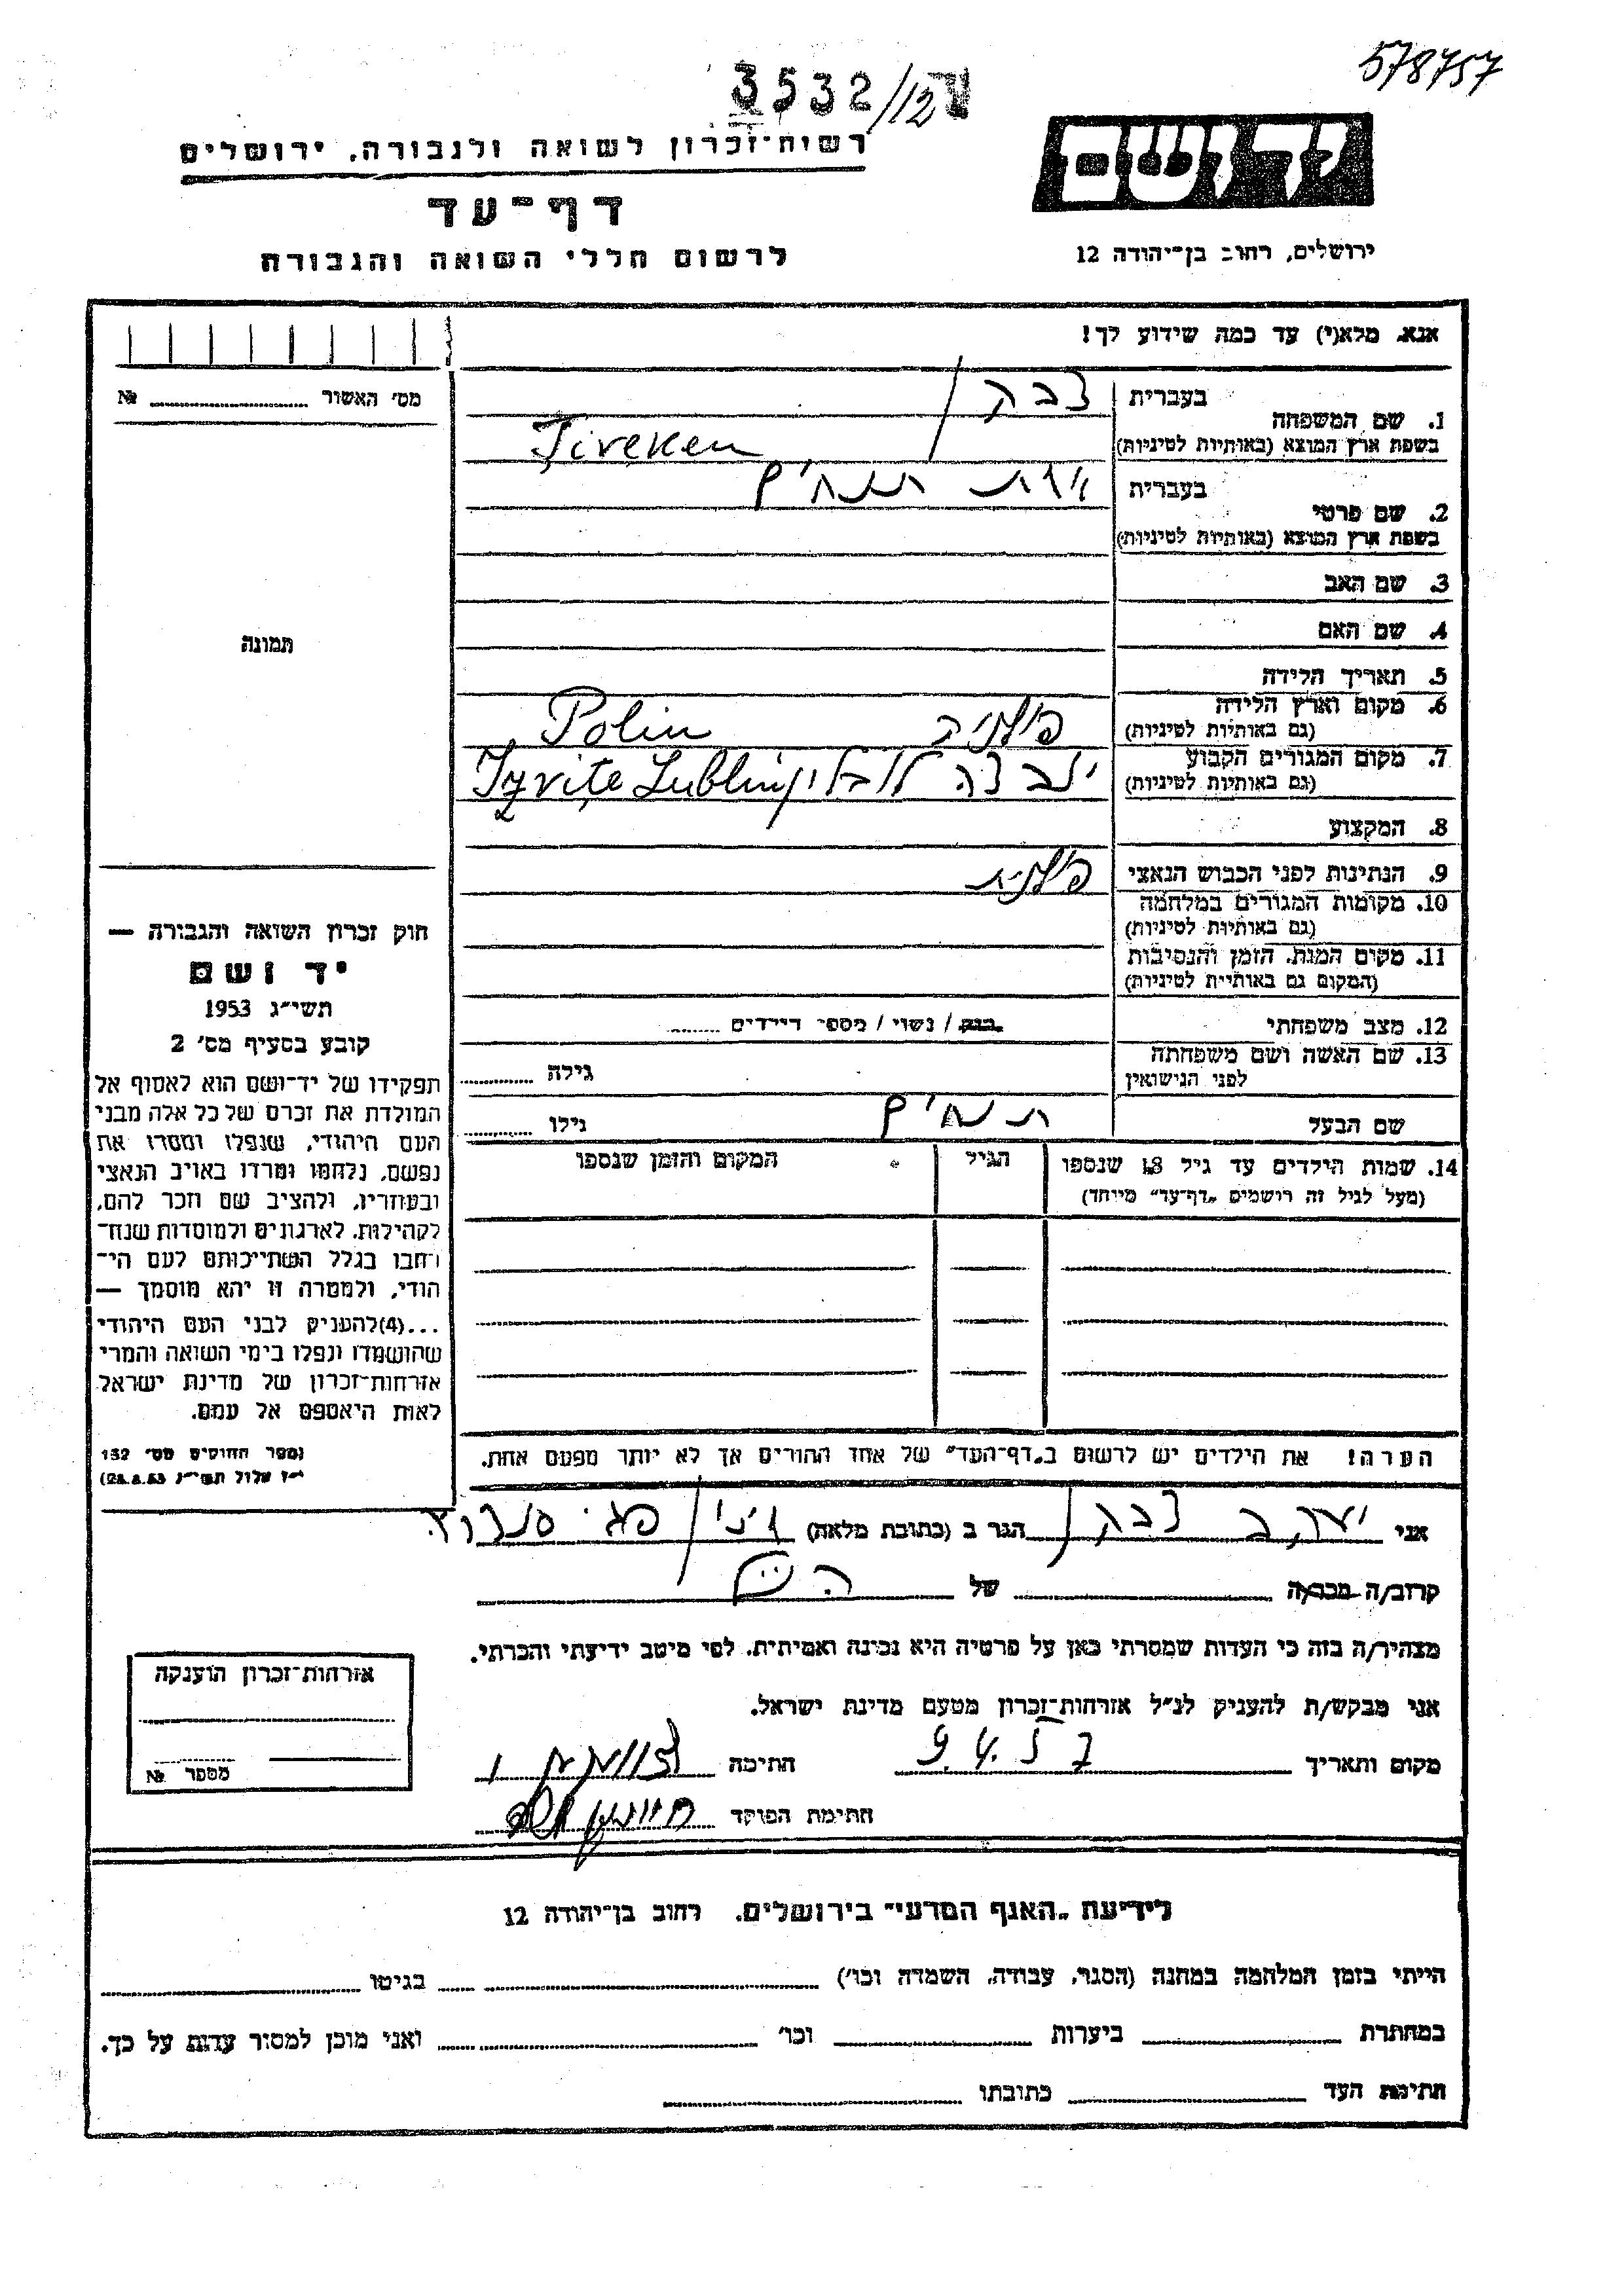 578757
3532/12
רשות־זכרון לשואה ולגבורה, ירושלים
יד ושם
דף־עד
לרשום חללי השואה והגבורה
ירושלים, רחוב בן־יהודה 12
אנא, מלא(י) עד כמה שידוע לך!
מס׳ האשור № 
1. שם המשפחה
בעברית
בשפת ארץ המוצא (באותיות לטיניות) Jiveken
2. שם פרטי
בעברית
בשפת ארץ המוצא (באותיות לטיניות)
3. שם האב
4. שם האם
תמונה
5. תאריך הלידה
6. מקום וארץ הלידה פולניה Polin
(גם באותיות לטיניות)
7. מקום המגורים הקבוע
(גם באותיות לטיניות)
8. המקצוע
9. הנתינות לפני הכבוש הנאצי פולנית
10. מקומות המגורים במלחמה
(גם באותיות לטיניות)
11. מקום המות, הזמן והנסיבות
(המקום גם באותיות לטיניות)
12. מצב משפחתי רווק / נשוי / מספר הילדים
13. שם האשה ושם משפחתה
לפני הנישואין
גילה
שם הבעל
גילו
14. שמות הילדים עד גיל 18 שנספו
(מעל לגיל זה רושמים „דף־עד״ מיוחד)
הגיל
המקום והזמן שנספו
חוק זכרון השואה והגבורה —
יד ושם
תשי״ג 1953
קובע בסעיף מס׳ 2
תפקידו של יד־ושם הוא לאסוף אל
המולדת את זכרם של כל אלה מבני
העם היהודי, שנפלו ומסרו את
נפשם, נלחמו ומרדו באויב הנאצי
ובעוזריו, ולהציב שם וזכר להם,
לקהילות, לארגונים ולמוסדות שנח־
רבו בגלל השתייכותם לעם הי־
הודי, ולמטרה זו יהא מוסמך —
...(4) להעניק לבני העם היהודי
שהושמדו ונפלו בימי השואה והמרי
אזרחות־זכרון של מדינת ישראל
לאות היאספם אל עמם.
(ספר החוקים מס׳ 132
י״ז אלול תשי״ג 28.8.53)
הערה! את הילדים יש לרשום ב„דף־העד״ של אחד ההורים אך לא יותר מפעם אחת.
אני יעקב הגר ב (כתובת מלאה)
קרוב/ה מכר/ה של
מצהיר/ה בזה כי העדות שמסרתי כאן על פרטיה היא נכונה ואמיתית, לפי מיטב ידיעתי והכרתי.
אני מבקש/ת להעניק לנ״ל אזרחות־זכרון מטעם מדינת ישראל.
מקום ותאריך 9.4.57 חתימה
חתימת הפוקד
אזרחות־זכרון הוענקה
מספר №
לידיעת „האגף המדעי״ בירושלים, רחוב בן־יהודה 12
הייתי בזמן המלחמה במחנה (הסגר, עבודה, השמדה וכו׳) בגיטו
במחתרת ביערות וכו׳ ואני מוכן למסור עדות על כך.
חתימת העד כתובתו